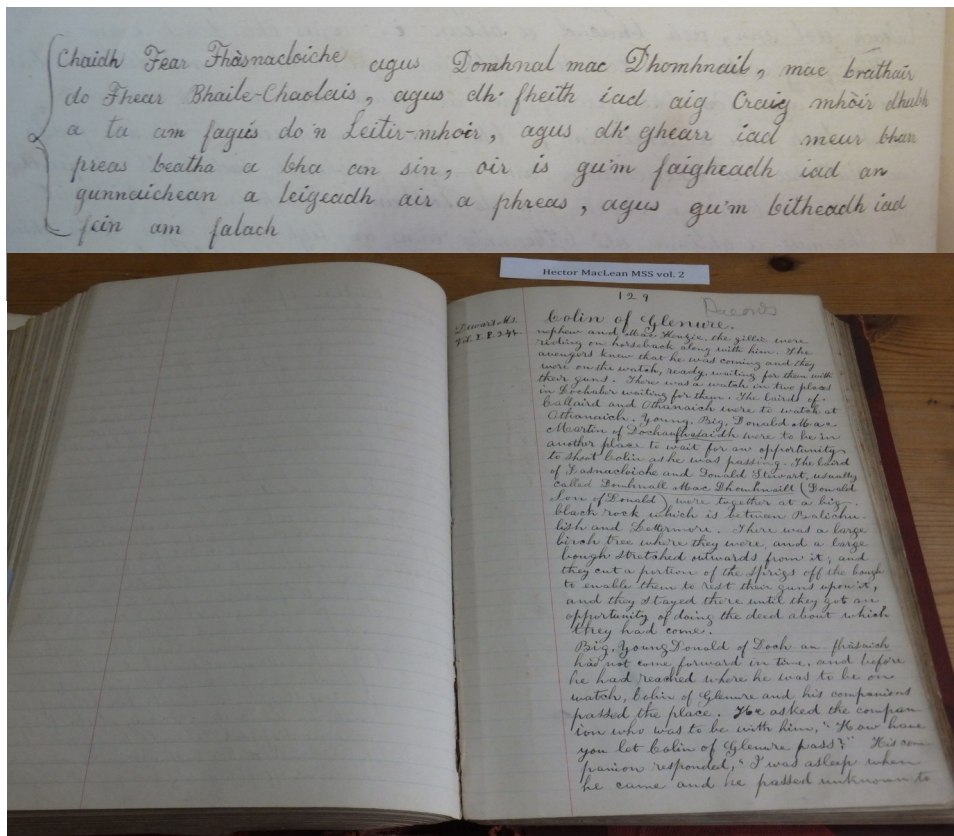 Chaidh Fear Fhàsnacloiche agus Domhnal mac Dhomhnail, mac brathair
do Fhear Bhaile-Chaolais, agus dh' fheith iad aig Craig mhòir dhubh
a ta am fagus do'n Leitir-mhoir, agus dh' ghearr iad meur bhàn
preas beatha a bha an sin, oir is gu'm faigheadh iad an
gunnaichean a leigeadh air a phreas, agus gu'm bitheadh iad
fein am falach
Hector MacLean MSS vol. 2
129
Records
Dewar MS.
Vol. I. P. 244.
Colin of Glenure.
nephew and Mac Kenzie, the gillie were
riding on horseback along with him. The
avengers knew that he was coming and they
were on the watch, ready, waiting for them with
their guns. There was a watch in two places
in Lochaber waiting for them. The lairds of
Callaird and Othanaich were to watch at
Othanaich. Young, Big, Donald Mac
Martin of Dochanfhasaidh were to be in
another place to wait for an opportunity
to shoot Colin as he was passing. The laird
of Fasnacloiche and Donald Stewart, usually
called Domhnall Mac Dhomhnaill (Donald
Son of Donald) were together at a big
black rock which is between Balichu-
lish and Lettermore. There was a large
birch tree where they were, and a large
bough stretched outwards from it; and
they cut a portion of the sprigs off the bough
to enable them to rest their guns upon it,
and they stayed there until they got an
opportunity of doing the deed about which
they had come.
Big, Young Donald of Doch an fhàsaich
had not come forward in time, and before
he had reached where he was to be on
watch, Colin of Glenure and his companions
passed the place. He asked the compan-
ion who was to be with him, "How have
you let Colin of Glenure pass?" His com-
panion responded, "I was asleep when
he came and he passed unknown to